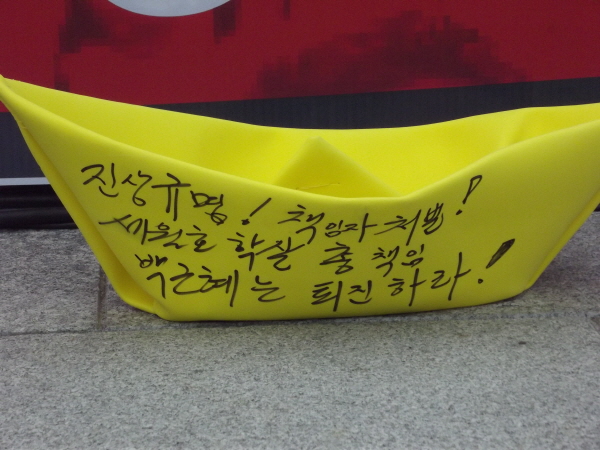 진상규명! 책임자 처벌!
세월호 학살 총 책임
박근혜는 퇴진하라!